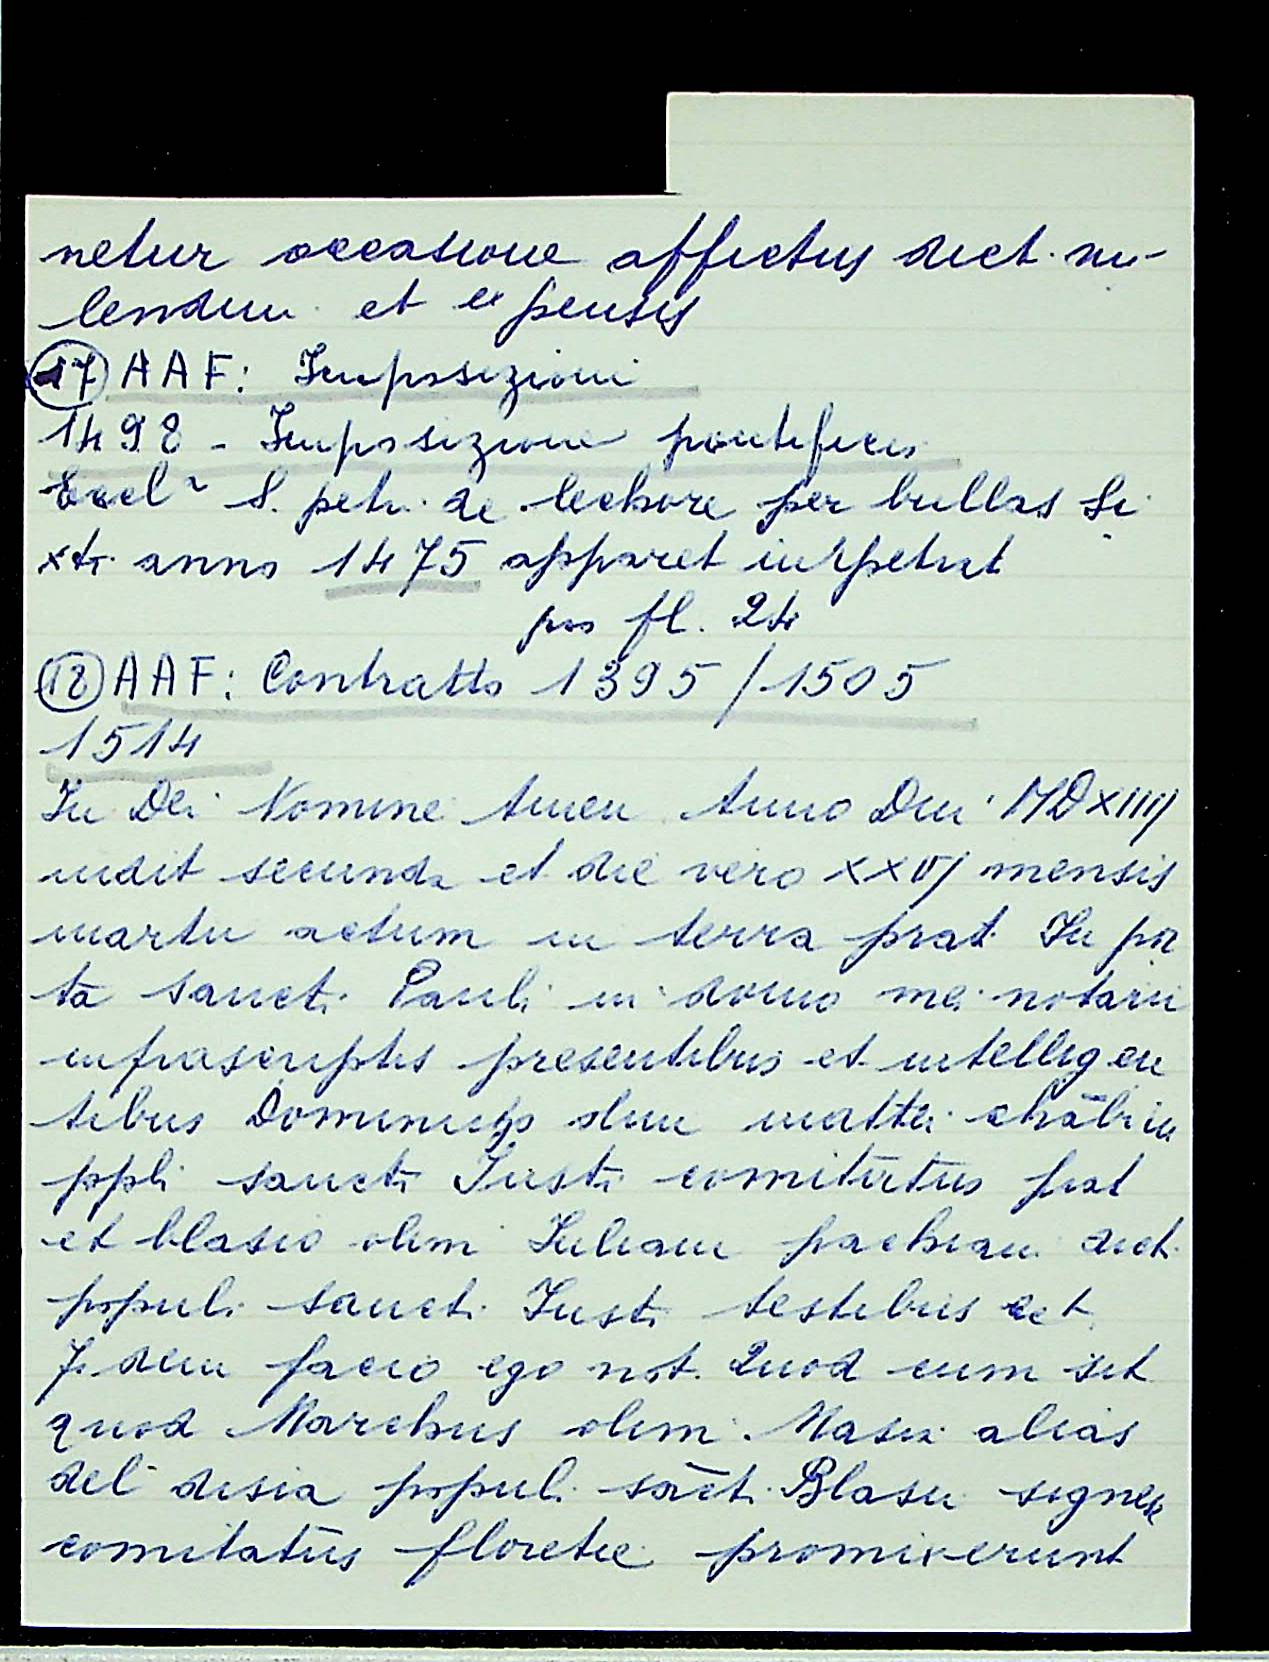 netur occasione affictus dict. mo-
lendini et expensis
17 AAF: Imposizioni
1498 - Imposizione pontificis
Eccl~ S. petri de lechore per bullas Si
xti anno 1475 apparet
pro fl. 24
18 AAF: Contratto 1395/1505
1514
In Dei Nomine Amen Anno Dni MDXIIIJ
indit secunda et die vero XXVJ mensis
martii actum in terra prat. In por
ta sancti Pauli in domo mei notarii
infrascriptis presentibus et intelligen
tibus olim mattei
ppli sancti Iusti comitatus prat
et blasio olim Iuliani dict.
populi sancti Iusti testibus ect
Fidem facio ego not. Quod cum sit
quod Marchus olim Masii alias
del disia populi sāct. Blasii
comitatūs floretie promixerunt